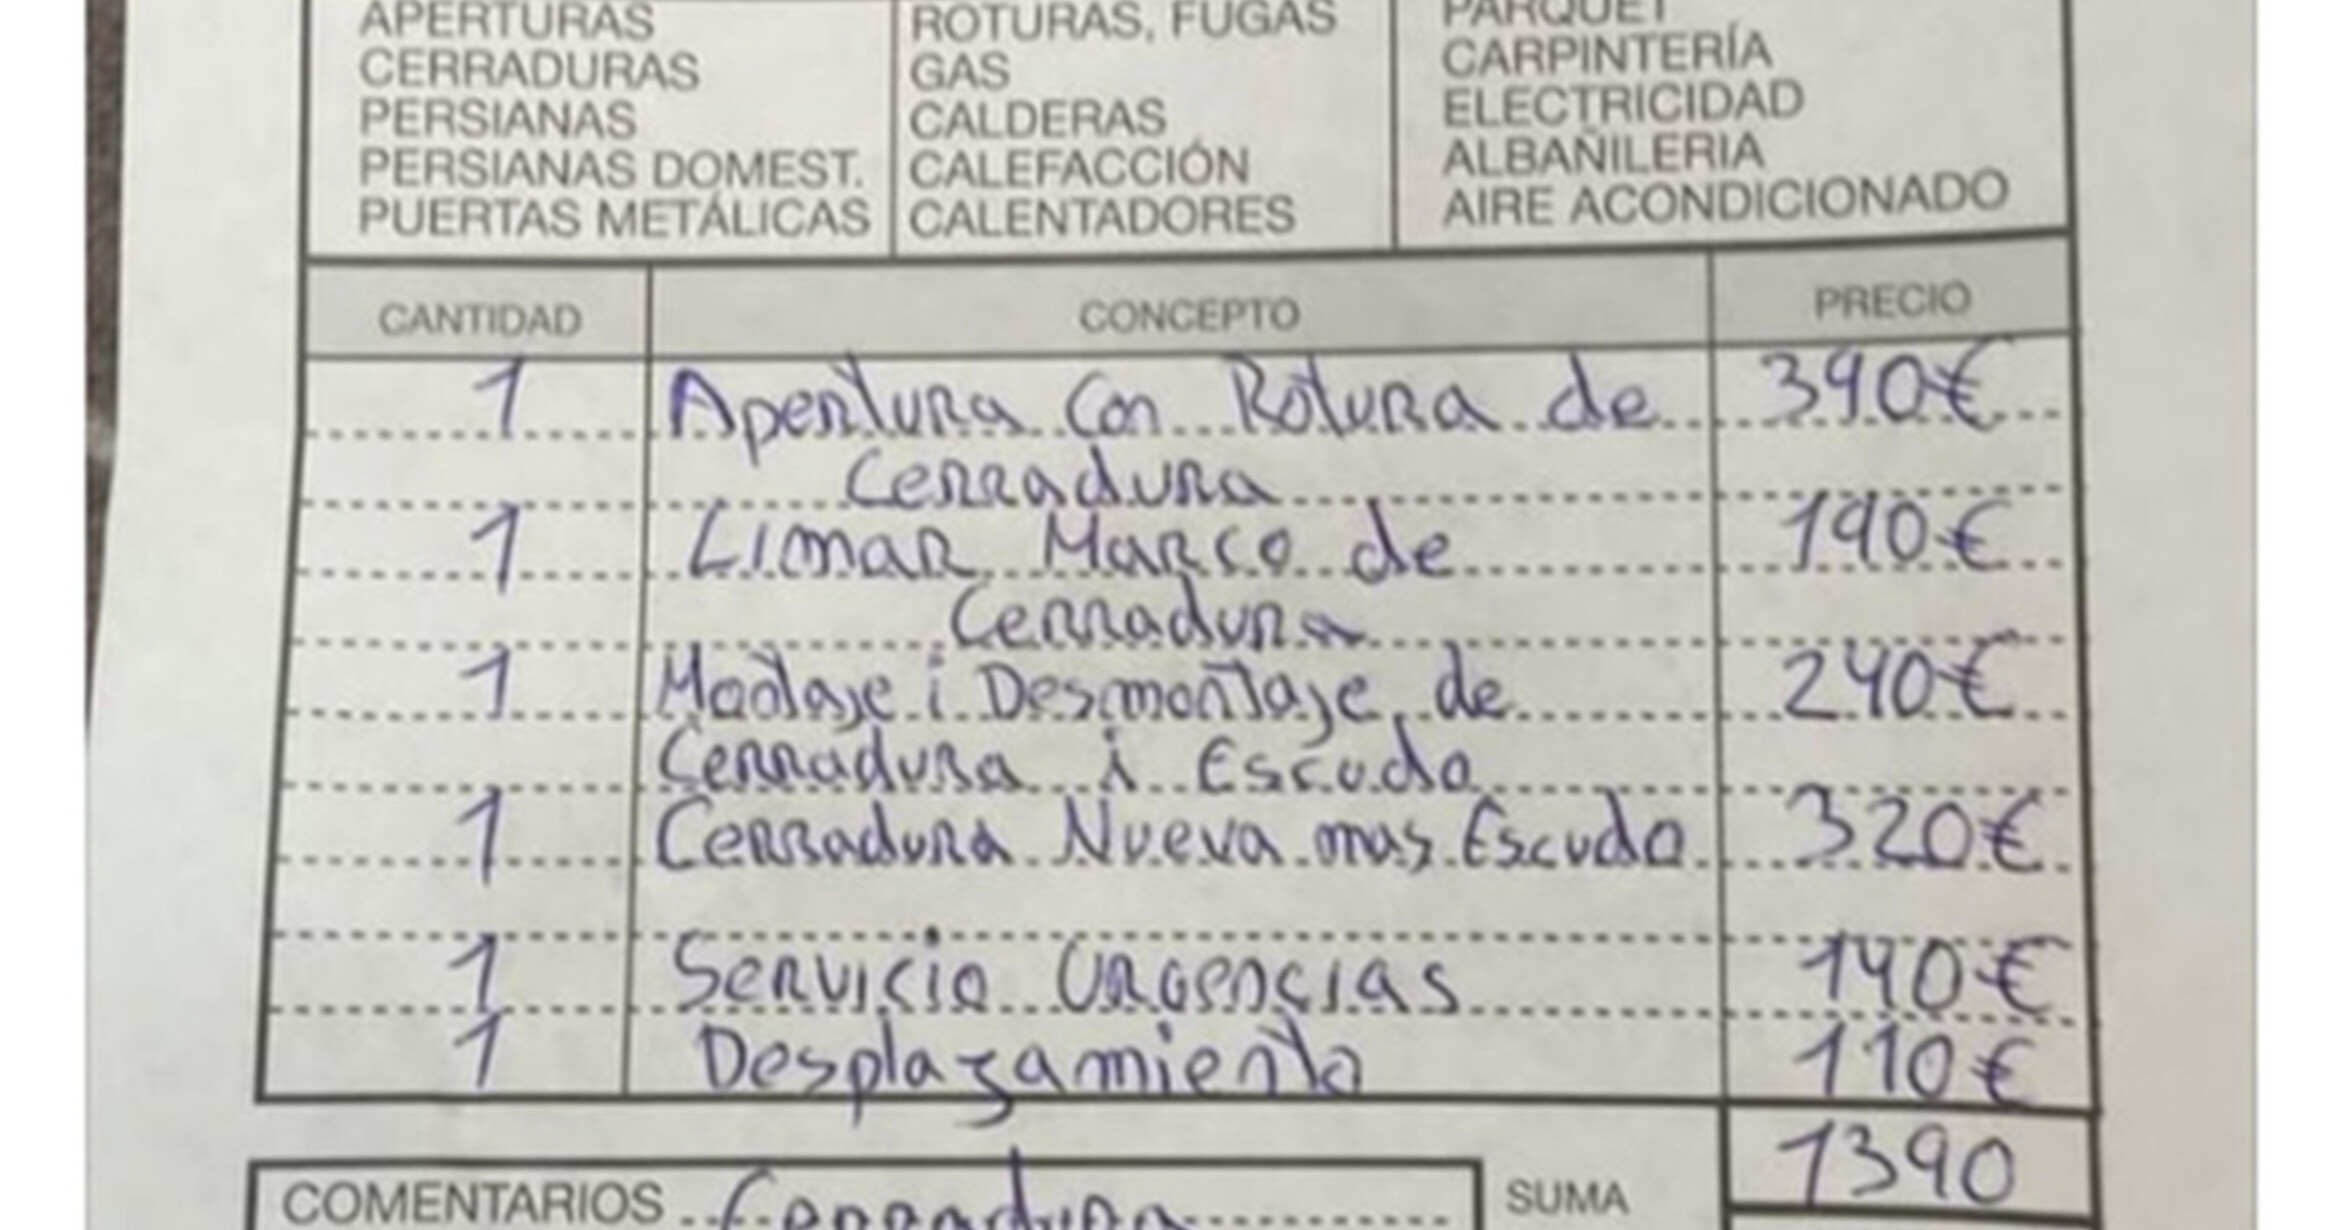 APERTURAS
CERRADURAS
PERSIANAS
PERSIANAS DOMEST.
PUERTAS METÁLICAS
ROTURAS, FUGAS
GAS
CALDERAS
CALEFACCIÓN
CALENTADORES
PARQUET
CARPINTERÍA
ELECTRICIDAD
ALBAÑILERIA
AIRE ACONDICIONADO
CANTIDAD CONCEPTO PRECIO
1 Apertura Con Rotura de 390€
Cerradura
1 Limar Marco de 190€
Cerradura
1 Montaje i Desmontaje de 240€
Cerradura i Escudo
1 Cerradura Nueva mas Escudo 320€
1 Servicio Urgencias 140€
1 Desplazamiento 110€
COMENTARIOS Cerradura SUMA 1390